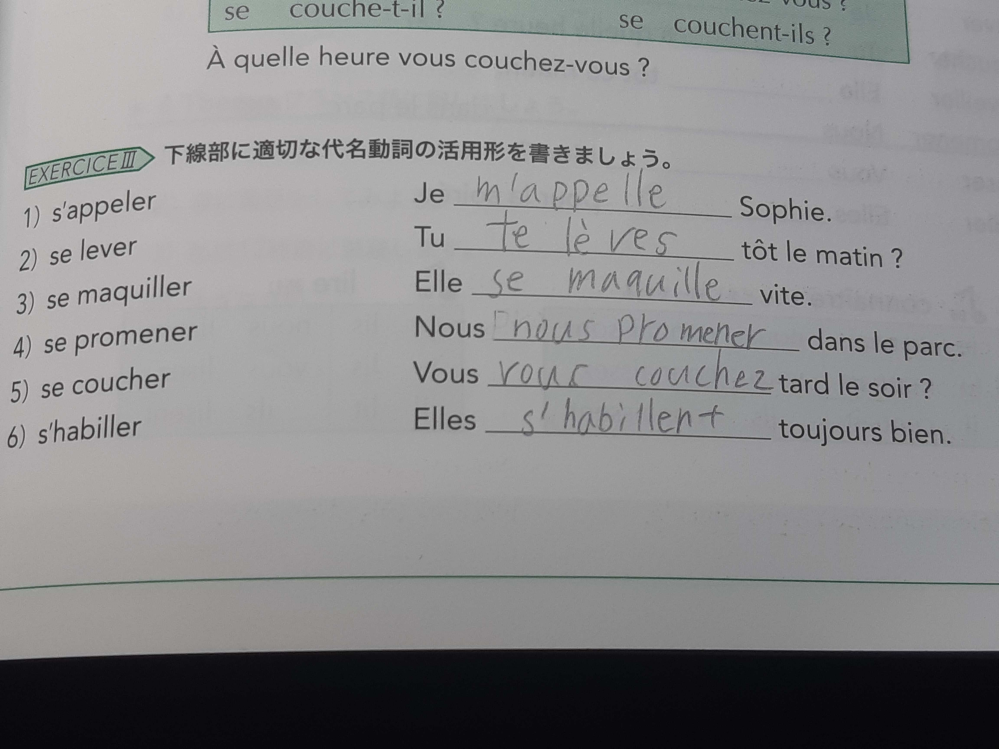 se couche-t-il ?
vous ?
se couchent-ils ?
À quelle heure vous couchez-vous ?
EXERCICE III 下線部に適切な代名動詞の活用形を書きましょう。
1) s'appeler Je m'appelle Sophie.
2) se lever Tu te lèves tôt le matin ?
3) se maquiller Elle se maquille vite.
4) se promener Nous nous promener dans le parc.
5) se coucher Vous vous couchez tard le soir ?
6) s'habiller Elles s'habillent toujours bien.